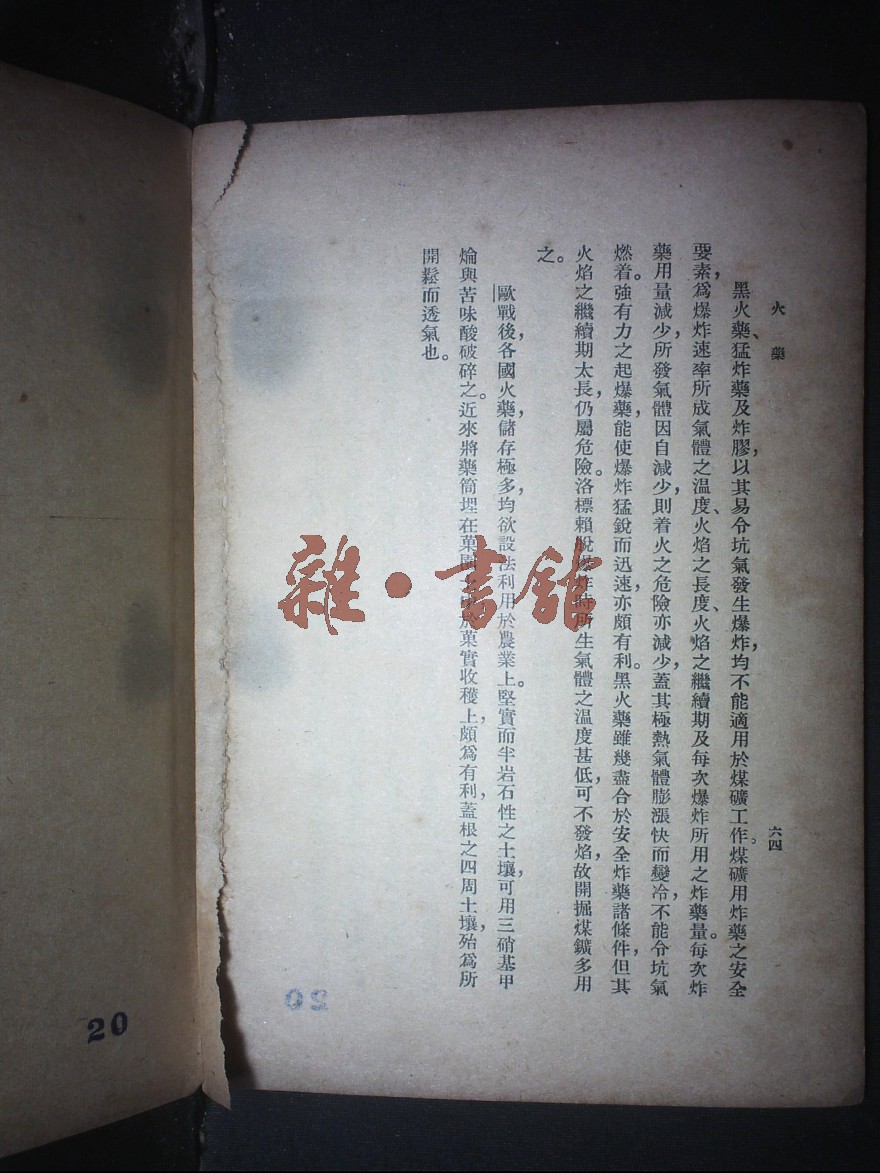 火藥
六四
黑火藥、猛炸藥及炸膠，以其易令坑氣發生爆炸，均不能適用於煤礦工作。煤礦用炸藥之安全
要素，爲爆炸速率所成氣體之溫度、火焰之長度、火焰之繼續期及每次爆炸所用之炸藥量。每次炸
藥用量減少，所發氣體因自減少，則着火之危險亦減少，蓋其極熱氣體膨漲快而變冷，不能令坑氣
燃着。強有力之起爆藥，能使爆炸猛銳而迅速，亦頗有利。黑火藥雖幾盡合於安全炸藥諸條件，但其
火焰之繼續期太長，仍屬危險。洛標賴脫爆炸時所生氣體之溫度甚低，可不發焰，故開掘煤鑛多用
之。
歐戰後，各國火藥，儲存極多，均欲設法利用於農業上。堅實而半岩石性之土壤，可用三硝基甲
㷍與苦味酸破碎之。近來將藥筒埋在菓園 於菓實收穫上，頗爲有利，蓋根之四周土壤，殆爲所
開鬆而透氣也。
雜·書館
20
20